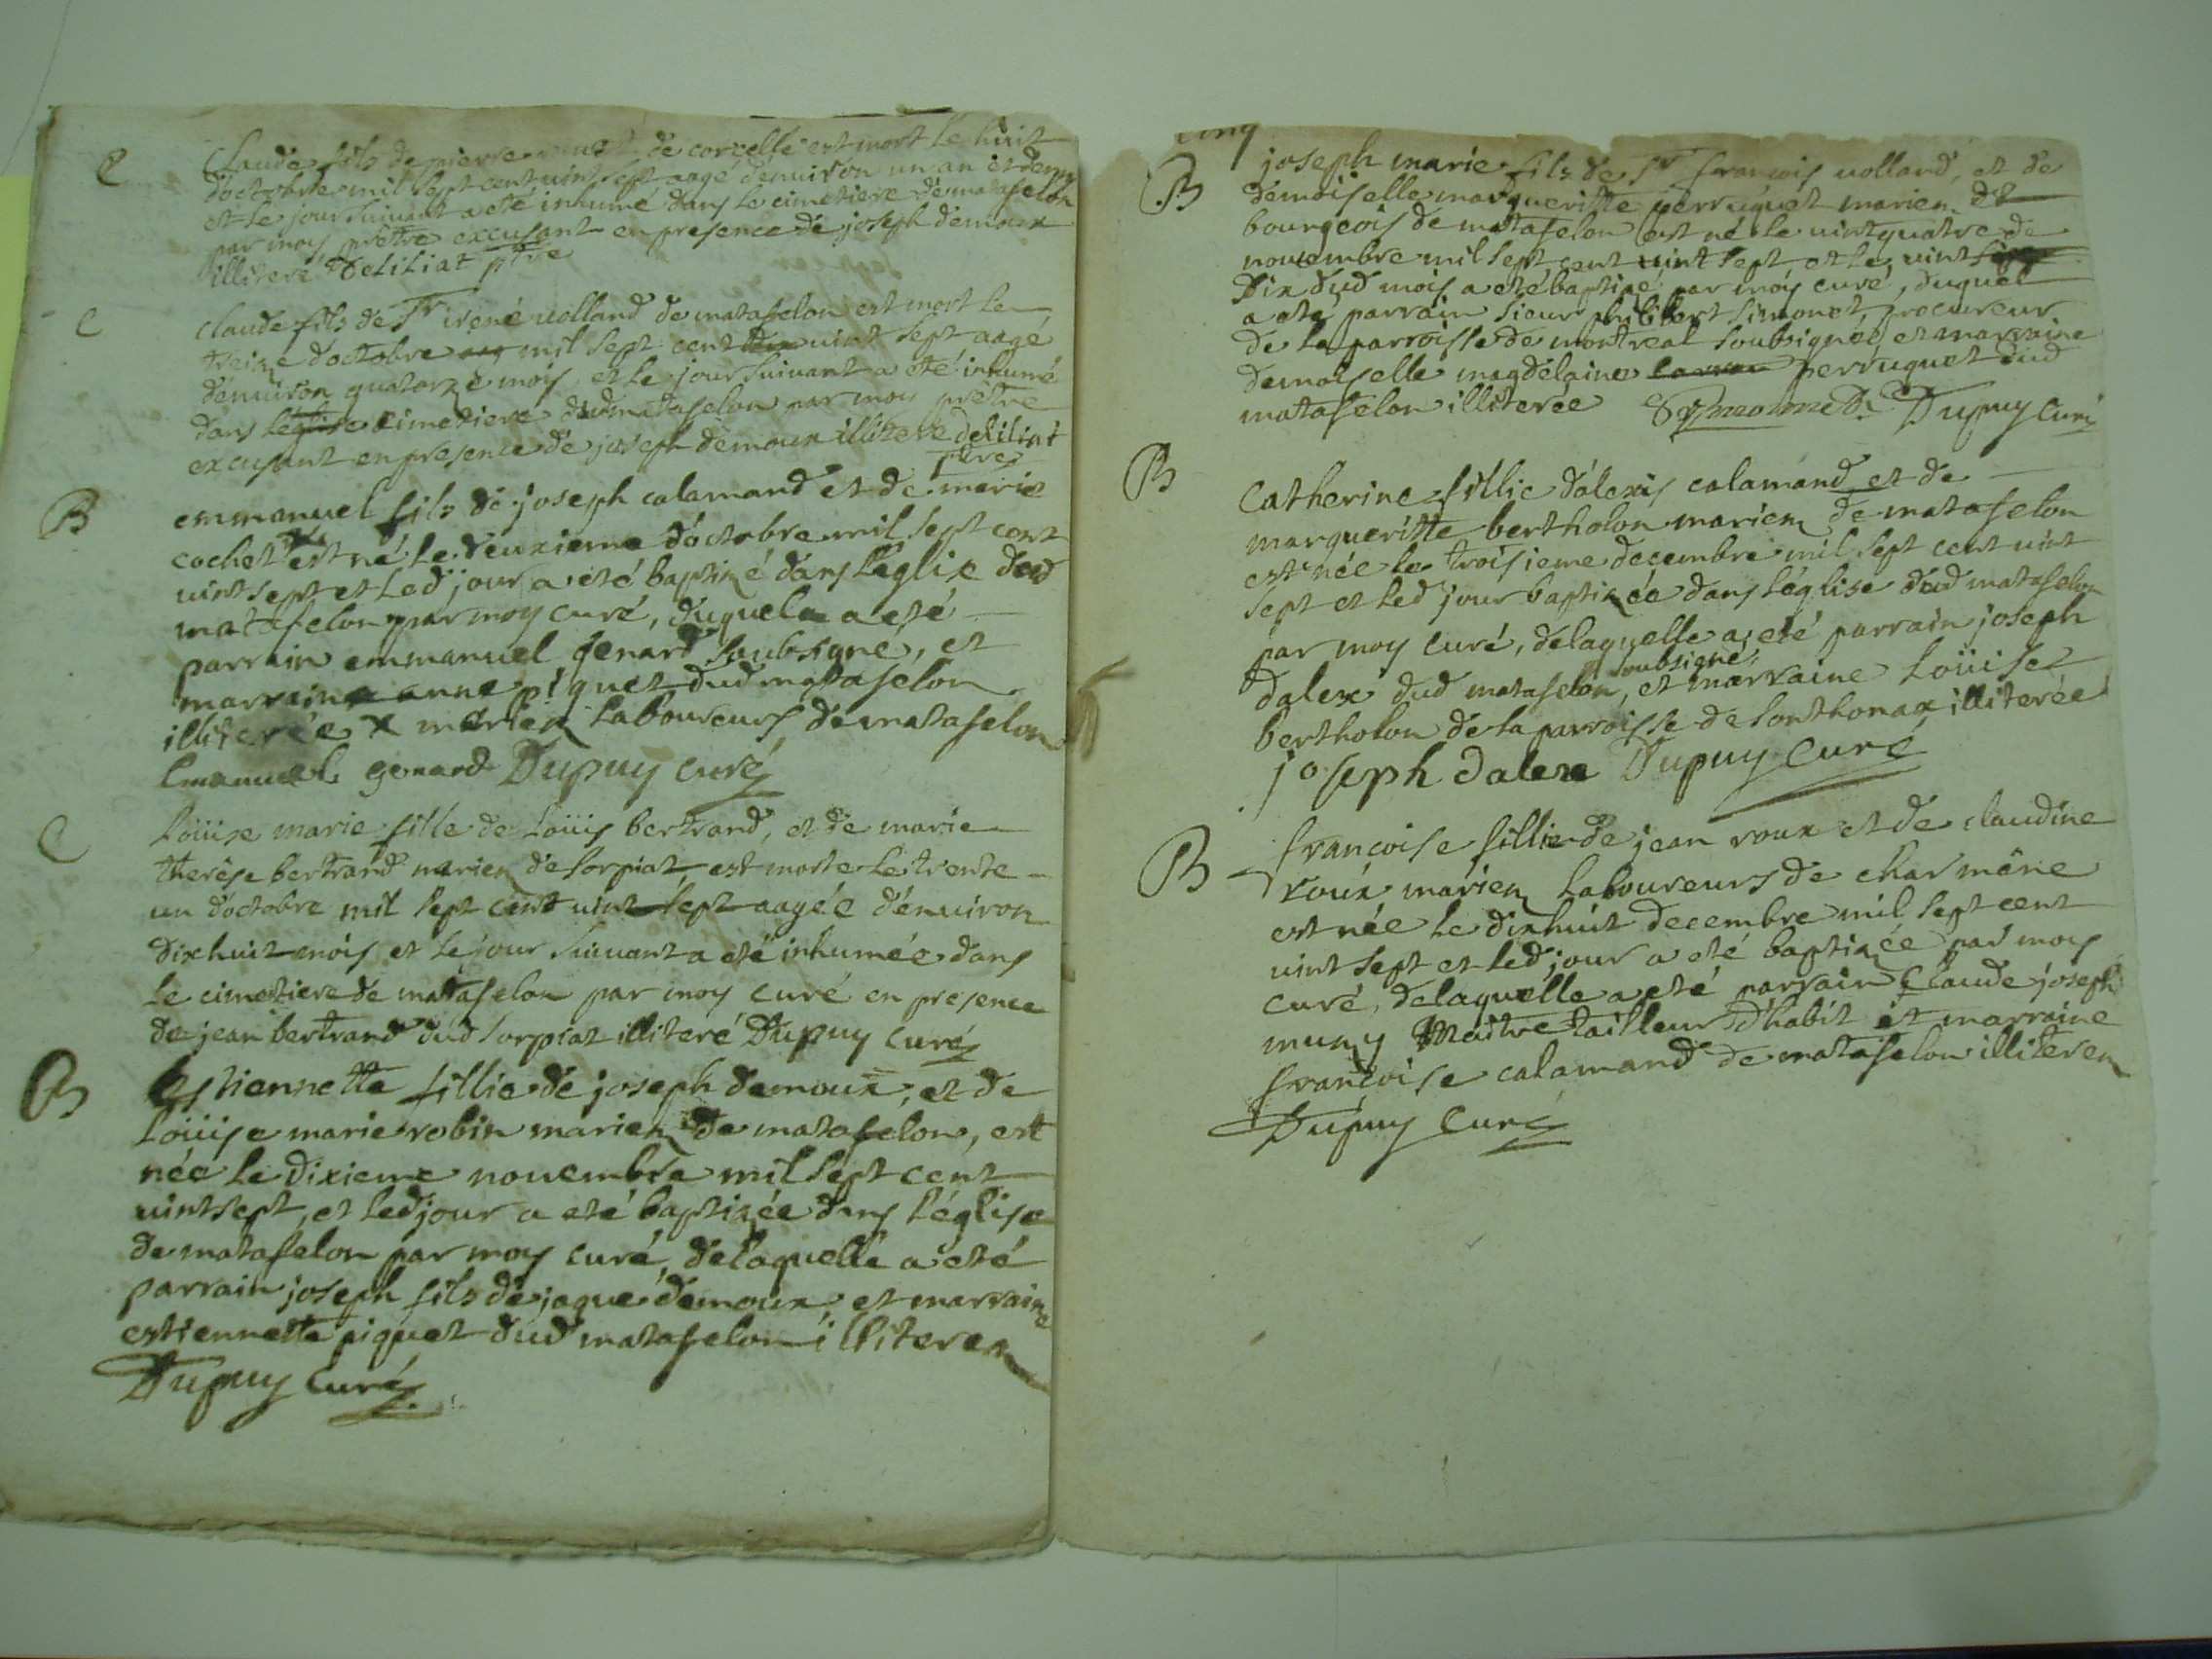 C
Claude fils de pierre de corcelle est mort le huit
doctobre mil sept cent vint sept aagé denviron un an et demy
et le jour suivant a eté inhumé dans le cimetiere de matafelon
par moy prêtre excusant en presence de joseph demoux
illiteré Deliliat ptre
C
claude fils de Sr irené volland de matafelon est mort le
treize doctobre mil sept cent vint sept aagé
denviron quatorze mois et le jour suivant a eté inhumé
dans leglise cimetiere dud matafelon par moy prêtre
excusant en presence de joseph demoux illiteré deliliat
ptre
B
emmanuel fils de joseph calamand et de marie
cochet x est né le deuxieme doctobre mil sept cent
vint sept et led jour a eté baptizé dans l'eglise dud
matafelon par moy curé, duquel a eté
parrain emmanuel genard soubsigné, et
marraine anne piquet dud matafelon
illiterée x mariez laboureurs de matafelon
Emanuel genard Dupuy curé
C
Loüise marie fille de Loüis bertrand, et de marie
therése bertrand mariez de sorpiat est morte le trente
un doctobre mil sept cent vint sept aagée d'environ
dixhuit mois et le jour suivant a eté inhumée dans
le cimetiere de matafelon par moy curé en presence
de jean bertrand dud sorpiat illiteré Dupuy curé
B
Estiennette fillie de joseph demoux, et de
Loüise marie robin mariez de matafelon, est
née le dixieme novembre mil sept cent
vint sept, et led jour a eté baptizée dans l'église
de matafelon par moy curé, delaquelle a eté
parrain joseph fils de jaque demoux et marraine
estiennette piquet dud matafelon illiterez
Dupuy curé
cinq
B
joseph marie fils de Sr françois volland, et de
demoiselle margueritte perruquet mariez
bourgeois de matafelon est né le vintquatre de
novembre mil sept cent vint sept et le vint
six dud mois a eté baptizé par moy curé, duquel
a eté parrain sieur philibert simonet, procureur
de la parroisse de montreal soubsigné, et marraine
demoiselle magdelaine perruquet dud
matafelon illiterée Dupuy curé
B
Catherine fillie d'alexis calamand et de
margueritte bertholon mariez de matafelon
est née le troisieme decembre mil sept cent vint
sept et led jour baptizée dans l'église dud matafelon
par moy curé, delaquelle a eté parrain joseph
dalex dud matafelon, soubsigné, et marraine Loüise
bertholon de la parroisse de sonthonax illiterée
joseph dalex Dupuy Curé
B
françoise fillie de jean roux et de claudine
roux mariez laboureurs de charmine
est née le dixhuit decembre mil sept cent
vint sept et led jour a eté baptizée par moy
curé, delaquelle a eté parrain Claude joseph
muny Maitre tailleur d'habit et marraine
françoise calamand de matafelon illiterez
Dupuy Curé